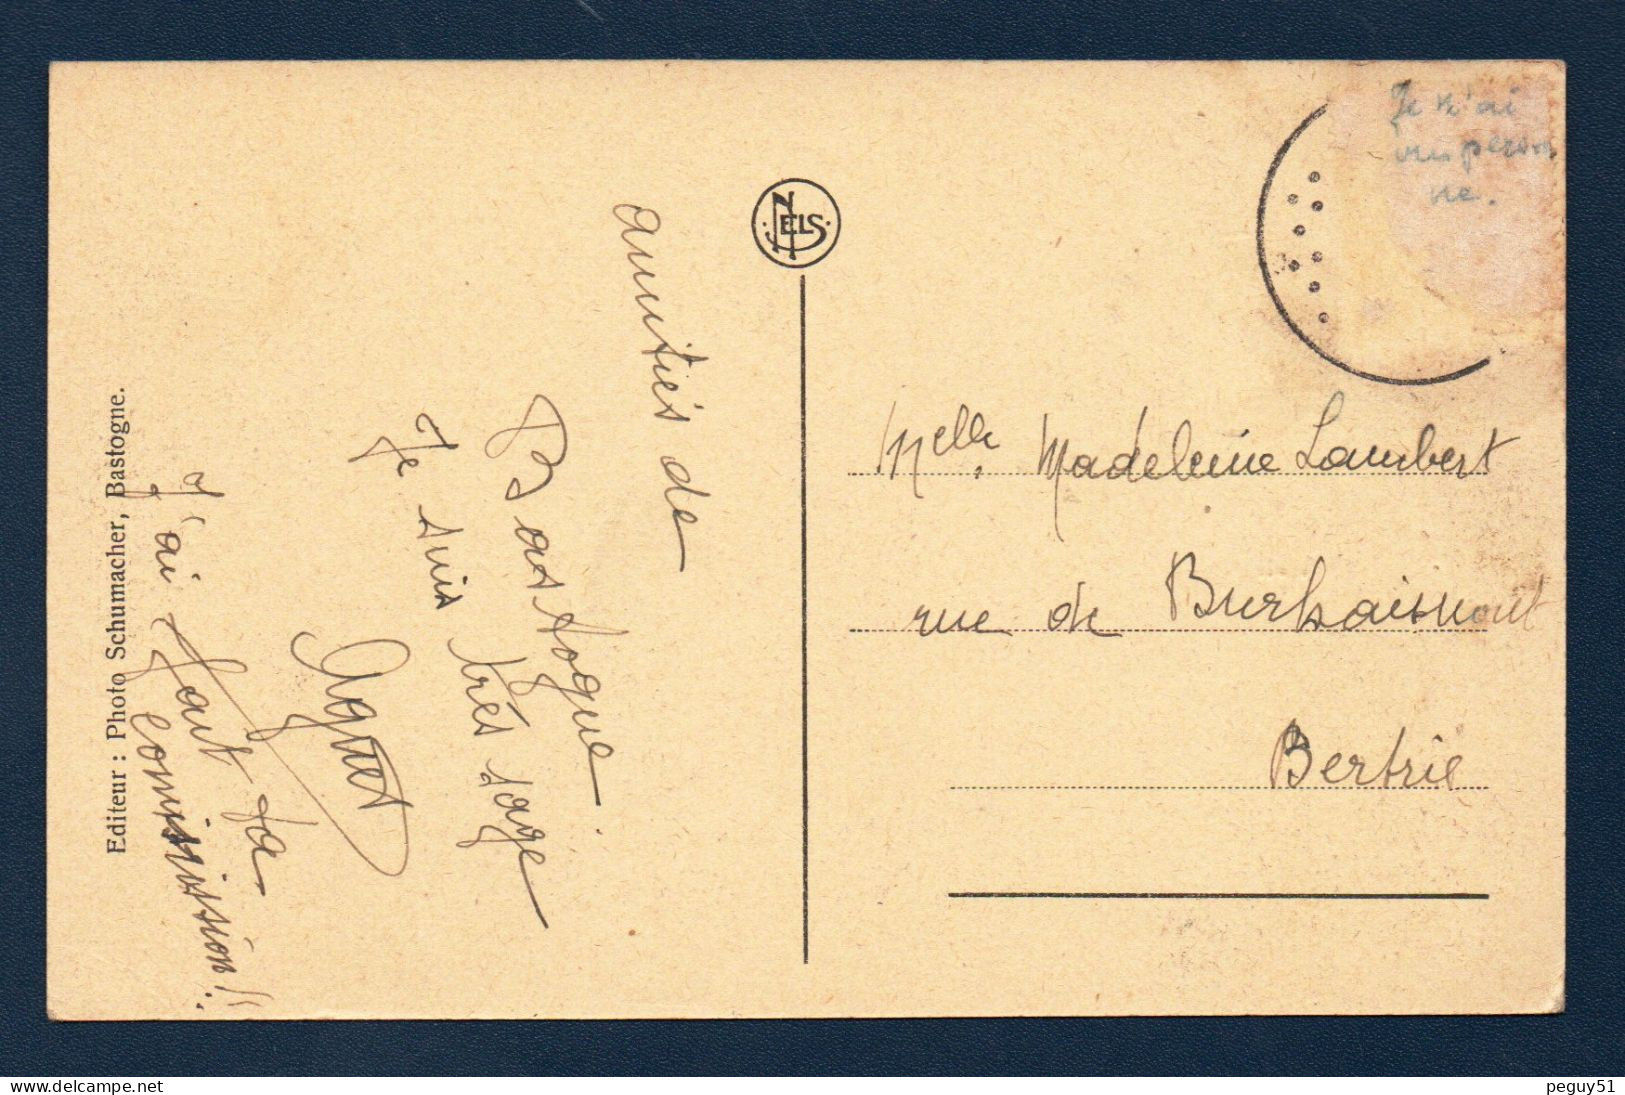 Je n'ai
vu person
ne.
NELS
amitiés de
Bastogne.
Je suis très sage
Agnet
J'ai fait ta
commission!!
Editeur : Photo Schumacher, Bastogne.
Melle Madeleine Lambert
rue de Burhaimont
Bertrix
delcampe.net
peguy51